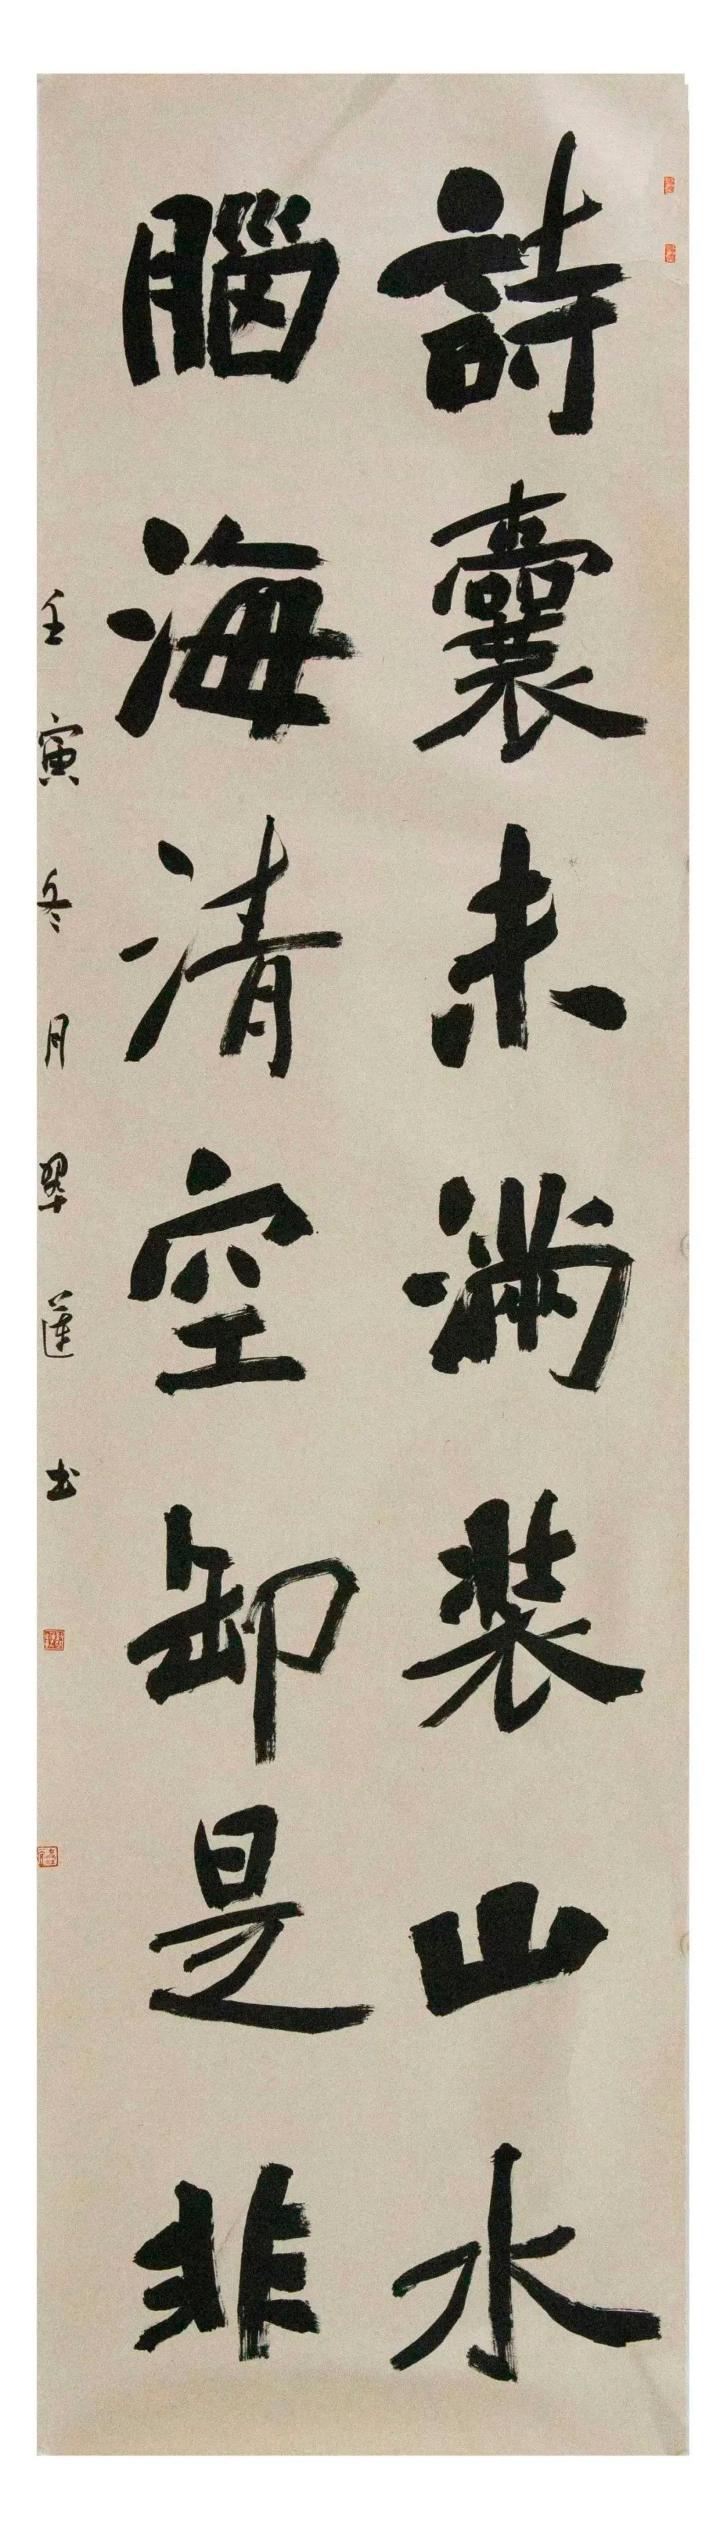 詩囊未滿裝山水
腦海清空卸是非
壬寅冬月翠蓮书